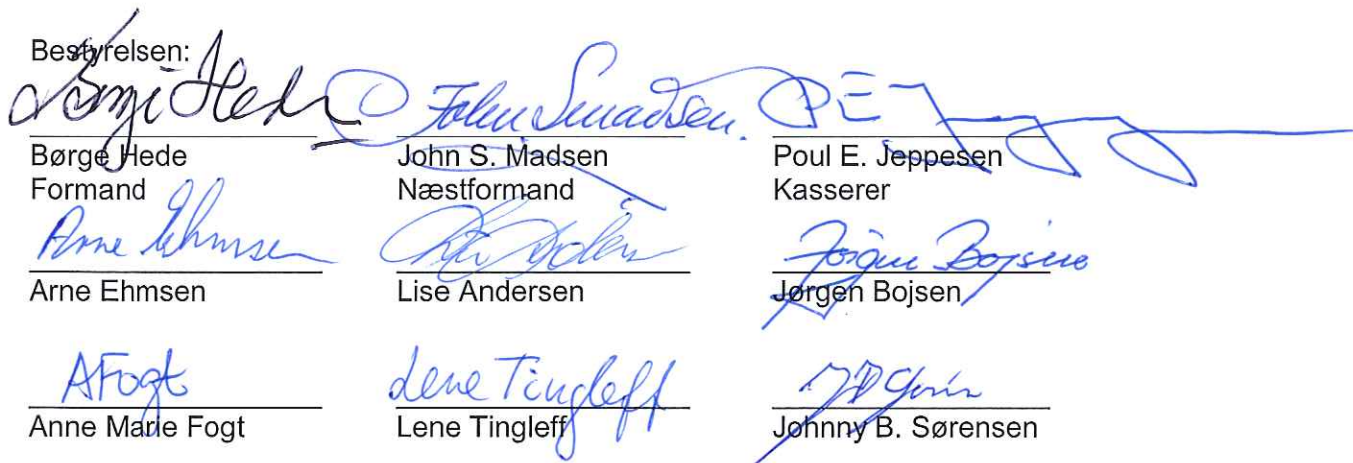 Bestyrelsen:
Børge Hede John S Madsen. PE Jeppesen
Børge Hede John S. Madsen Poul E. Jeppesen
Formand Næstformand Kasserer
Arne Ehmsen Jørgen Bojsen
Arne Ehmsen Lise Andersen Jørgen Bojsen
AFogt Lene Tingleff
Anne Marie Fogt Lene Tingleff Johnny B. Sørensen